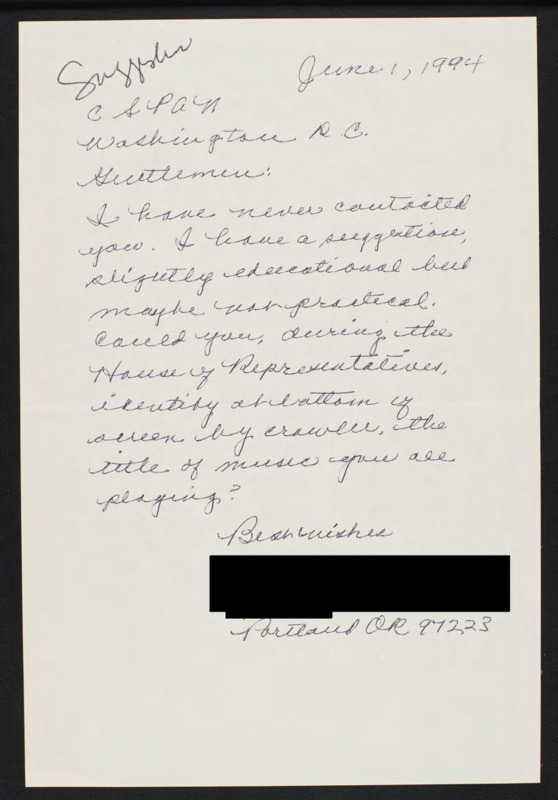 Suggestion
June 1, 1994
C S P A N
Washington D.C.
Gentlemen:
I have never contacted
you. I have a suggestion,
slightly educational but
maybe not practical.
Could you, during the
House of Representatives,
identify at bottom of
screen by crawler, the
title of music you are
playing?
Best wishes
Portland OR 97223